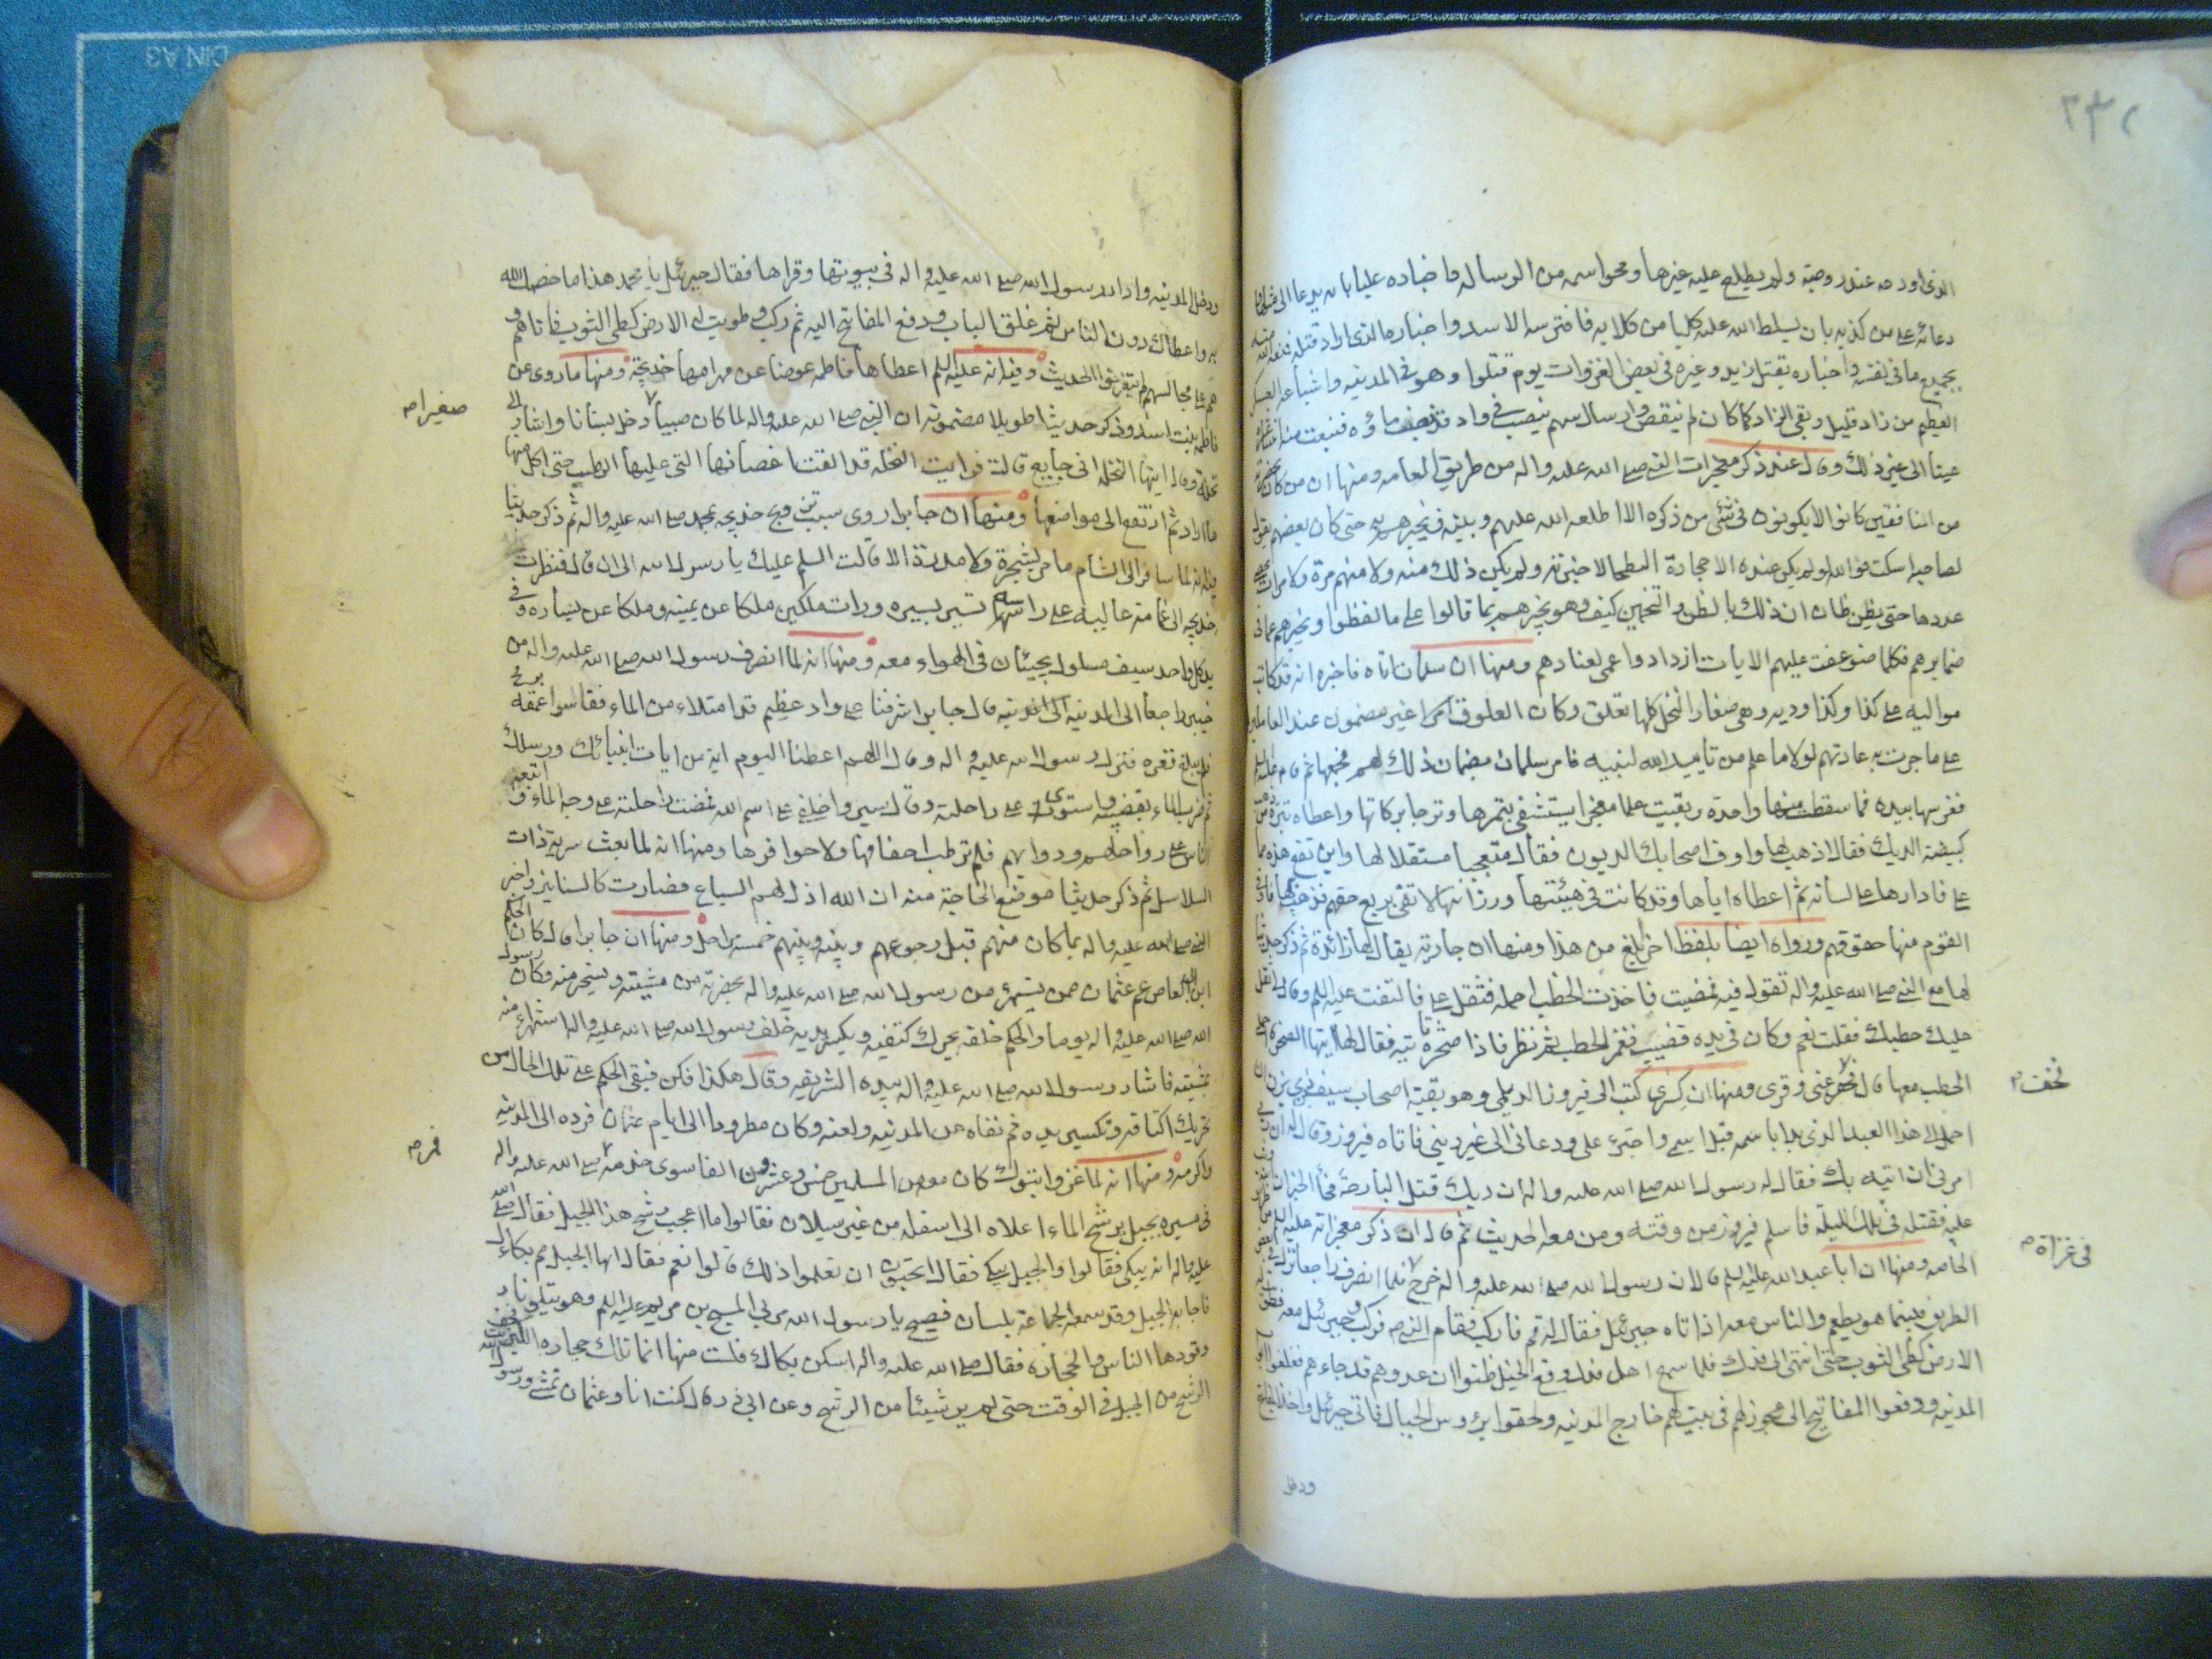 ٢٣١
الذى اودعه عند زوجته ولم يطلع عليه غيرها ومحوا سمه من الرسالة واخباره عليا بانه يدعا الى مثلها
دعائه على من كذبه بان يسلط الله عليه كلبا من كلابه فافترسه الاسد واخباره الذى اراد قتله
بجميع ما فى نفسه واخباره بقتل زيد وغيره فى بعض الغزوات يوم قتلوا وهو فى المدينة واشباع العسكر
العظيم من زاد قليل وبقى الزاد كما كان لم ينقص وارسال سهم ينصب فى واد قد نضب ماؤه فنبعت
عينا الى غير ذلك وقال عند ذكر معجزات النبى صلى الله عليه واله من طريق العامه ومنها ان من كان بحضرته
من المنافقين كانوا لا يكونون فى شئ من ذكره الا اطلعه الله عليهم وبينه فيخبرهم به حتى كان بعضهم يقول
لصاحبه اسكت فوالله لو لم يكن عنده الا حجارة البطحا لاخبرته ولم يكن ذلك منه ولا منهم مرة ولا مرات
عددها حتى يظن ظان ان ذلك بالظن والتخمين كيف وهو يخبرهم بما قالوا على ما لفظوا ويخبرهم عما فى
ضمايرهم فكلما ضوعفت عليهم الايات ازدادوا عمى لعنادهم ومنها ان سلمان اتاه فاخبره انه قد كاتب
مواليه على كذا وكذا وديه وهى صغار النخل كلها تعلق وكان العلوق امرا غير مضمون عند العاملين
على ما جرت به عادتهم لولا ما علم من تاييد الله لنبيه فامر سلمان بضمان ذلك لهم فجمعها ثم قام عليه السلم
فغرسها بيده فما سقطت منها واحدة وبقيت علما معجزا يستشفى بتمرها وترجا بركاتها واعطاه تبرة من
كبيضة الديك فقال اذهب بها واوف اصحابك الديون فقال متعجبا مستقلا لها واين تقع هذه مما
على فادارها على لسانه ثم اعطاه اياها وقد كانت فى هيئتها ووزانتها لا تفى بربع حقهم فذهب بها فاوفى
القوم منها حقوقهم ورواه ايضا بلفظ اخر ابلغ من هذا ومنها ان جارية يقال لها زائدة ثم ذكر حديثا
لها مع النبى صلى الله عليه واله تقول فيه فمضيت فاخذت الحطب احمله فثقل على فالتفت عليه السلم وقال لى ثقل
عليك حطبك فقلت نعم وكان فى يده قضيب فغمز الحطب ثم نظر فاذا صخرة ناتية فقال لها ايتها الصخرة احملى
الحطب معها قال فخفف عنى وقرى ومنها ان كسرى كتب الى فيروز الديلمى وهو بقية اصحاب سيف بن ذى يزن ان
احمل الى هذا العبد الذى يبدا باسمه قبل اسمى واجترء على ودعانى الى غير دينى فاتاه فيروز وقال له ان ربى
امرنى ان اتيه بك فقال له رسول الله صلى الله عليه واله ان ربك قتل البارحة فجأ الخبر ان
عليه فقتله فى تلك الليلة فاسلم فيروز من وقته ومن معه الحديث ثم قال ان ذكر معجزاته عليه السلم
الخاصه ومنها ان ابا عبد الله عليه السلم قال ان رسول الله صلى الله عليه واله خرج فلما انصرف راجعا نزل فى بعض
الطريق فبينما هو يطعم والناس معه اذا تاه جبرئيل فقال له قم فاركب فقام النبى صم فركب وجبرئيل معه فطويت له
الارض كطى الثوب حتى انتهى الى فدك فلما سمع اهل فدك وقع الخيل ظنوا ان عدوهم قد جاءهم فغلقوا ابواب
المدينه ودفعوا المفاتيح الى عجوز لهم فى بيت لهم خارج المدينه ولحقوا برؤس الجبال فاتى جبرئيل واخذ المفاتيح
ودخل
فخفت م
فى غزاة م
ودخل المدينه وادار رسول الله صلى الله عليه واله فى بيوتها وقراها فقال جبرئيل يا محمد هذا ما خصك الله
به واعطاك دون الناس ثم غلق الباب ودفع المفاتيح اليه ثم ركب وطويت له الارض كطى الثوب فاتاهم و
هم على مجالسهم لم يتفرقوا الحديث وفيه انه عليه السلم اعطاها فاطمه عوضا عن مهر امها خديجة ومنها ما روى عن
فاطمه بنت اسد وذكر حديثا طويلا مضمونه ان النبى صلى الله عليه واله لما كان صبيا دخل بستانا واشار الى
نخلة وقال ايتها النخله انى جايع قالت فرايت النخله قد القت اغصانها التى عليها الرطب حتى اكل منها
ما اراد ثم ارتفع الى مواضعها ومنها ان جابرا روى سبب تزويج خديجه بمحمد صلى الله عليه واله ثم ذكر حديثا
فيه انه لما سافر الى الشام ما مر بشجرة ولا مدرة الا قالت السلم عليك يا رسول الله الى ان قال فنظرت
خديجه الى غمامة عاليه على راسه تسير بسيره ورات ملكين ملكا عن يمينه وملكا عن يساره وفى
يد كل واحد سيف مسلول يجيئان فى الهواء معه ومنها انه لما انصرف رسول الله صلى الله عليه واله من
خيبر راجعا الى المدينه قال جابر اشرفنا على واد عظيم قد امتلاء من الماء فقاسوا عمقه برمح
فلم يبلغ قعره فنزل رسول الله عليه واله وقال اللهم اعطنا اليوم اية من ايات انبيائك ورسلك
ثم ضرب الماء بقضيبه واستوى على راحلته وقال سيروا خلفى على اسم الله فمضت راحلته على وجه الماء واتبعه
الناس على رواحلهم ودوابهم فلم ترطب اخفافها ولا حوافرها ومنها انه لما بعث سرية ذات
السلاسل ثم ذكر حديثا موضع الحاجة منه ان الله اذل لهم السباع فصارت كالسنانير واخبر
النبى صلى الله عليه واله بما كان منهم قبل رجوعهم وبينه وبينهم خمسة مراحل ومنها ان جابرا قال كان الحكم
ابن العاص عم عثمان ممن يستهزء من رسول الله صلى الله عليه واله بخصرته من مشيته ويسخر منه وكان رسول
الله صلى الله عليه واله يوما والحكم خلفه يحرك كتفيه ويكسر يديه خلف رسول الله صلى الله عليه واله استهزاء منه
بمشيته فاشار رسول الله صلى الله عليه واله بيده الشريفه وقال هكذا فكن فبقى الحكم على تلك الحال من
تحريك اكتافه وتكسير يده ثم نفاه عن المدينه ولعنه وكان مطرودا الى ايام عثمان فرده الى المدينه
واكرمه ومنها انه لما غزوا بتبوك كان معه من المسلمين خمس وعشرون الفا سوى خدمه صلى الله عليه واله
فى مسيره بجبل يرشح الماء من اعلاه الى اسفله من غير سيلان فقالوا ما اعجب رشح هذا الجبل فقال صلى الله
عليه واله انه يبكى فقالوا والجبل يبكى فقال اتحبون ان تعلموا ذلك قالوا نعم فقال ايها الجبل مم بكاءك
فاجابه الجبل وقد سمعه الجماعة بلسان فصيح يا رسول الله مر بى المسيح بن مريم عليه السلم وهو يتلو نارا
وقودها الناس والحجارة فقال صلى الله عليه واله اسكن بكاك فلست منها انما تلك حجارة الكبريت
الرشح من الجبل فى الوقت حتى لم ير شيئا من الرشح وعن ابى ذر قال كنت انا وعثمان نمشى ورسول
صغيرا م
فمر م